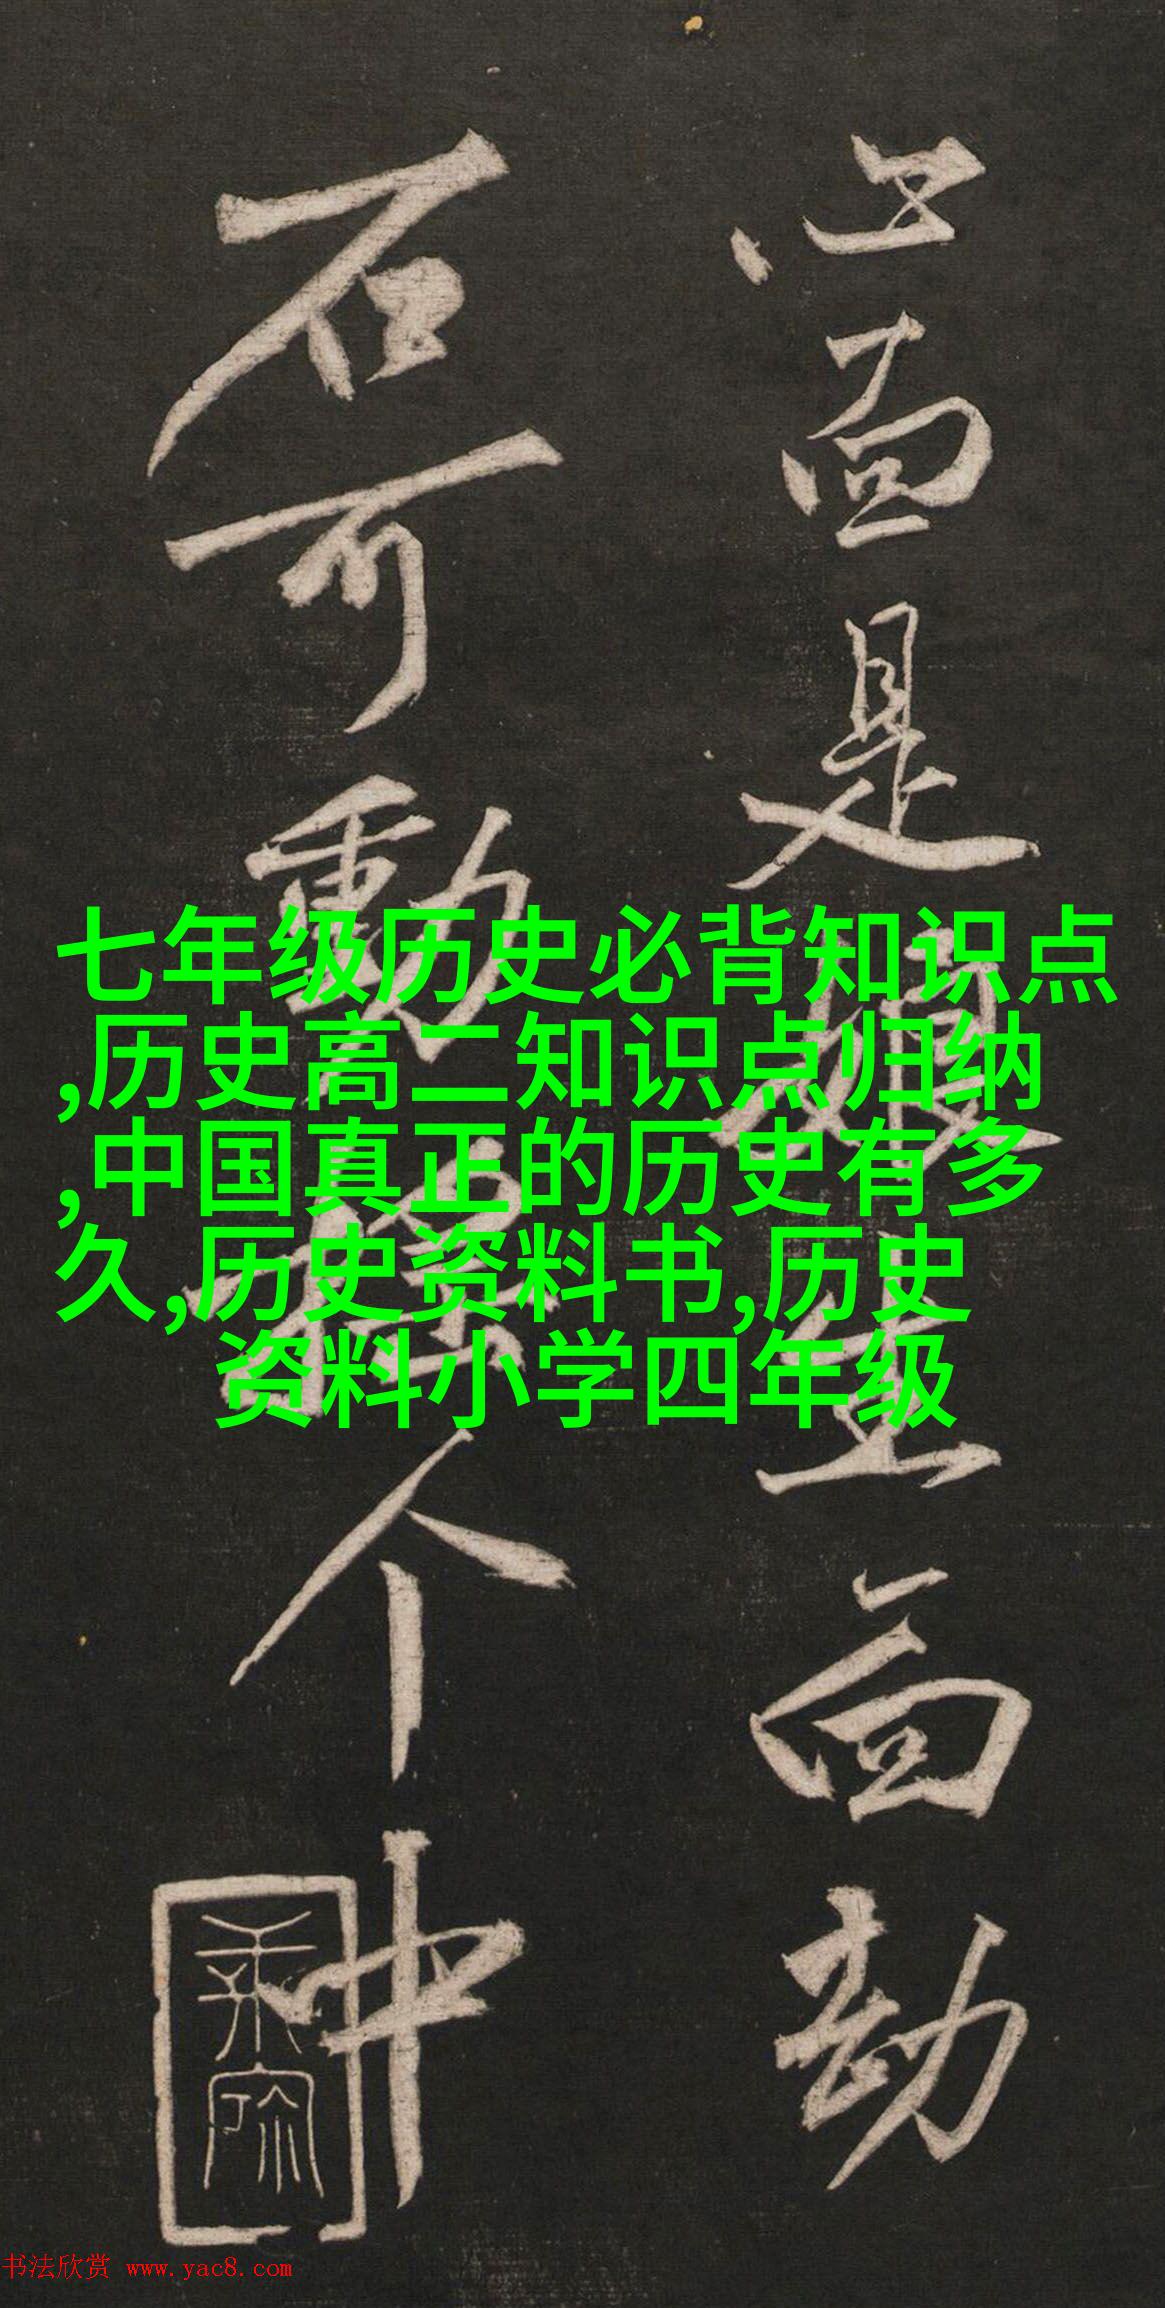 面是
面劫
石可動
个中
七年级历史必背知识点
,历史高二知识点归纳
,中国真正的历史有多
久,历史资料书,历史
资料小学四年级
书法欣赏 www.yac8.com